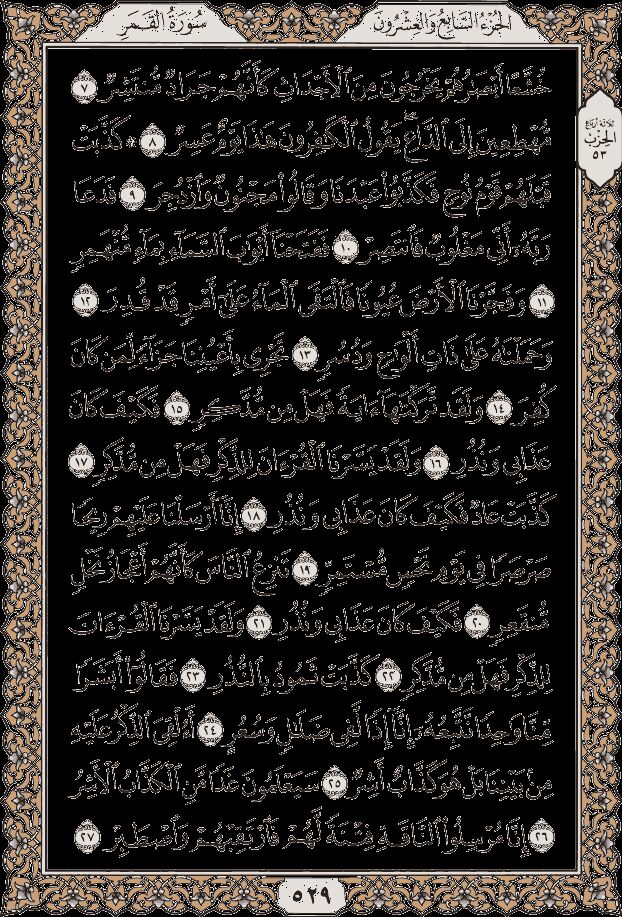 الجزء السابع والعشرون
سورة القمر
خُشَّعًا أَبْصَٰرُهُمْ يَخْرُجُونَ مِنَ ٱلْأَجْدَاثِ كَأَنَّهُمْ جَرَادٌ مُّنتَشِرٌ ٧
مُّهْطِعِينَ إِلَى ٱلدَّاعِ ۖ يَقُولُ ٱلْكَٰفِرُونَ هَٰذَا يَوْمٌ عَسِرٌ ٨ ۞ كَذَّبَتْ
قَبْلَهُمْ قَوْمُ نُوحٍ فَكَذَّبُوا۟ عَبْدَنَا وَقَالُوا۟ مَجْنُونٌ وَٱزْدُجِرَ ٩ فَدَعَا
رَبَّهُۥٓ أَنِّى مَغْلُوبٌ فَٱنتَصِرْ ١٠ فَفَتَحْنَآ أَبْوَٰبَ ٱلسَّمَآءِ بِمَآءٍ مُّنْهَمِرٍ
١١ وَفَجَّرْنَا ٱلْأَرْضَ عُيُونًا فَٱلْتَقَى ٱلْمَآءُ عَلَىٰٓ أَمْرٍ قَدْ قُدِرَ ١٢
وَحَمَلْنَٰهُ عَلَىٰ ذَاتِ أَلْوَٰحٍ وَدُسُرٍ ١٣ تَجْرِى بِأَعْيُنِنَا جَزَآءً لِّمَن كَانَ
كُفِرَ ١٤ وَلَقَد تَّرَكْنَٰهَآ ءَايَةً فَهَلْ مِن مُّدَّكِرٍ ١٥ فَكَيْفَ كَانَ
عَذَابِى وَنُذُرِ ١٦ وَلَقَدْ يَسَّرْنَا ٱلْقُرْءَانَ لِلذِّكْرِ فَهَلْ مِن مُّدَّكِرٍ ١٧
كَذَّبَتْ عَادٌ فَكَيْفَ كَانَ عَذَابِى وَنُذُرِ ١٨ إِنَّآ أَرْسَلْنَا عَلَيْهِمْ رِيحًا
صَرْصَرًا فِى يَوْمِ نَحْسٍ مُّسْتَمِرٍّ ١٩ تَنزِعُ ٱلنَّاسَ كَأَنَّهُمْ أَعْجَازُ نَخْلٍ
مُّنقَعِرٍ ٢٠ فَكَيْفَ كَانَ عَذَابِى وَنُذُرِ ٢١ وَلَقَدْ يَسَّرْنَا ٱلْقُرْءَانَ
لِلذِّكْرِ فَهَلْ مِن مُّدَّكِرٍ ٢٢ كَذَّبَتْ ثَمُودُ بِٱلنُّذُرِ ٢٣ فَقَالُوٓا۟ أَبَشَرًا
مِّنَّا وَٰحِدًا نَّتَّبِعُهُۥٓ إِنَّآ إِذًا لَّفِى ضَلَٰلٍ وَسُعُرٍ ٢٤ أَءُلْقِىَ ٱلذِّكْرُ عَلَيْهِ
مِنۢ بَيْنِنَا بَلْ هُوَ كَذَّابٌ أَشِرٌ ٢٥ سَيَعْلَمُونَ غَدًا مَّنِ ٱلْكَذَّابُ ٱلْأَشِرُ
٢٦ إِنَّا مُرْسِلُوا۟ ٱلنَّاقَةِ فِتْنَةً لَّهُمْ فَٱرْتَقِبْهُمْ وَٱصْطَبِرْ ٢٧
ثلاثة أرباع
الحزب
٥٣
٥٢٩